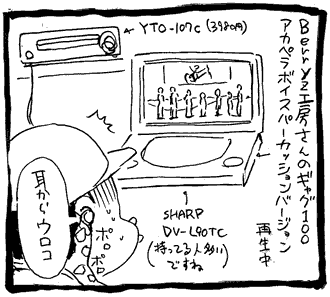 Berryz工房さんのギャグ100
アカペラボイスパーカッションバージョン
再生中
YTO-107C (3980円)
SHARP
DV-L90TC
(持ってる人多い
ですね)
耳からウロコ
ポロ
ポロ